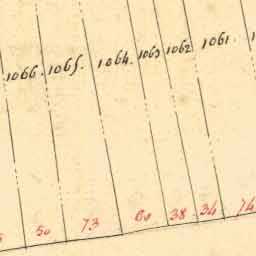 1066. 1065. 1064. 1063 1062 1061.
50 73 60 38 34 74